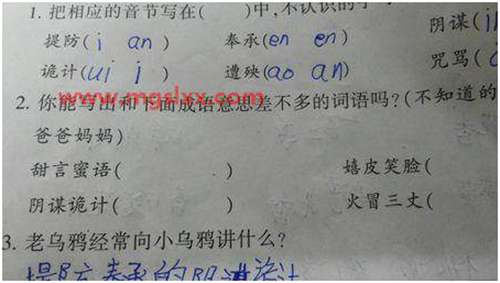 1. 把相应的音节写在( )中,不认识的字
提防(i an) 奉承(en en) 阴谋(i
诡计(ui i) 遭殃(ao an) 咒骂(
www.mgslxx.com
2. 你能写出和下面成语意思差不多的词语吗?(不知道的
爸爸妈妈)
甜言蜜语( ) 嬉皮笑脸(
阴谋诡计( ) 火冒三丈(
3. 老乌鸦经常向小乌鸦讲什么?
提防奉承的阴谋诡计